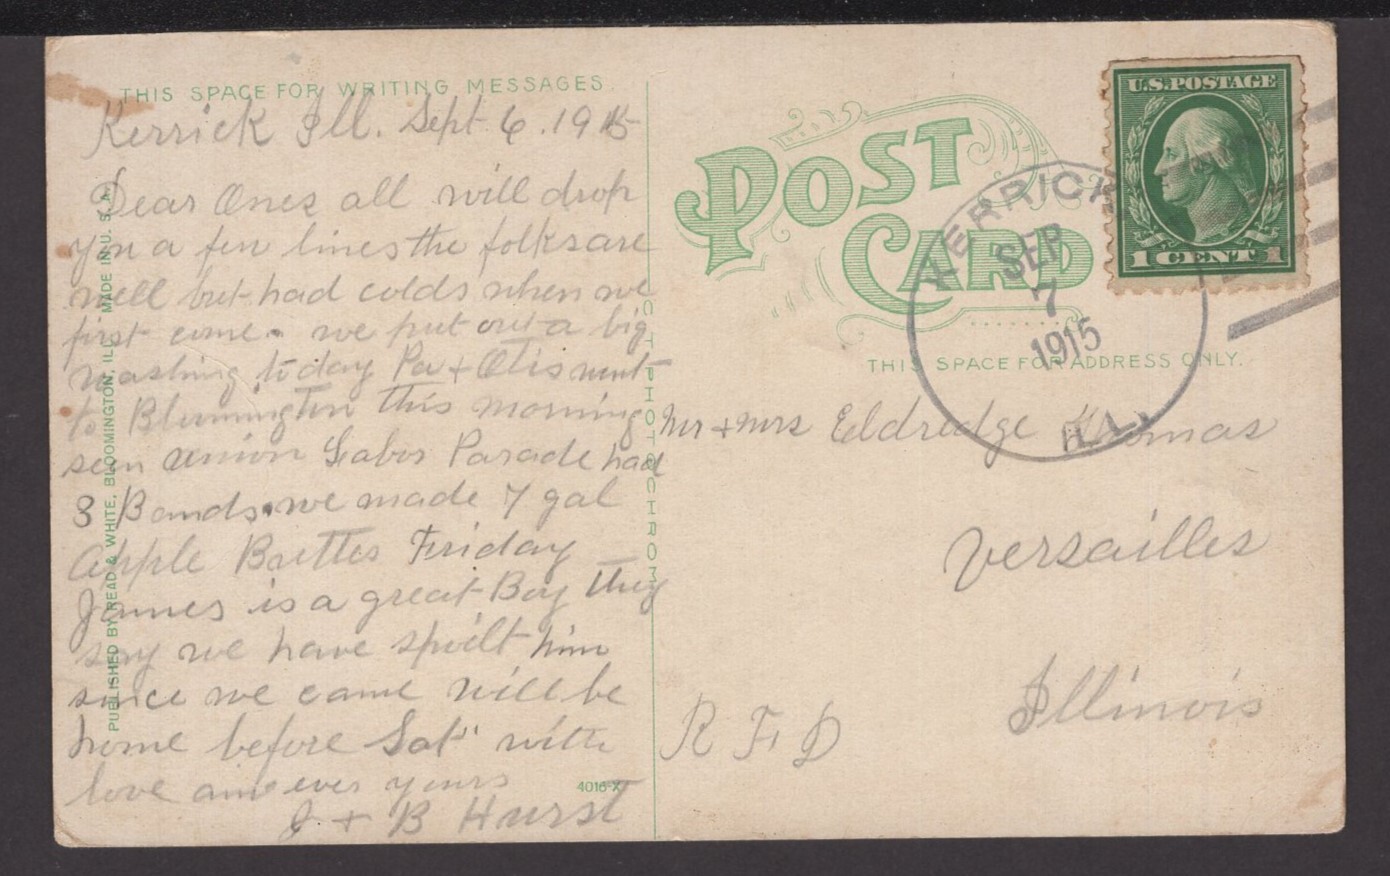 THIS SPACE FOR WRITING MESSAGES
Kerrick Ill. Sept 6. 1915
Dear Ones all will drop
you a few lines the folks are
well but had colds when we
first come. we put out a big
washing today Pa + Otis went
to Bloomington this morning
seen Union Labor Parade had
3 Bands. we made 7 gal
apple Butter Friday
James is a great Boy they
say we have spoilt him
since we came will be
home before Sat" with
love and ever yours
J + B Hurst
4016-X
PUBLISHED BY READ & WHITE, BLOOMINGTON, ILL. MADE IN U. S. A.
OCTOCHROM
POST
CARD
THIS SPACE FOR ADDRESS ONLY.
U.S. POSTAGE
1 CENT 1
KERRICK
SEP
7
1915
ILL.
Mr + Mrs Eldredge Thomas
Versailles
Illinois
R F D